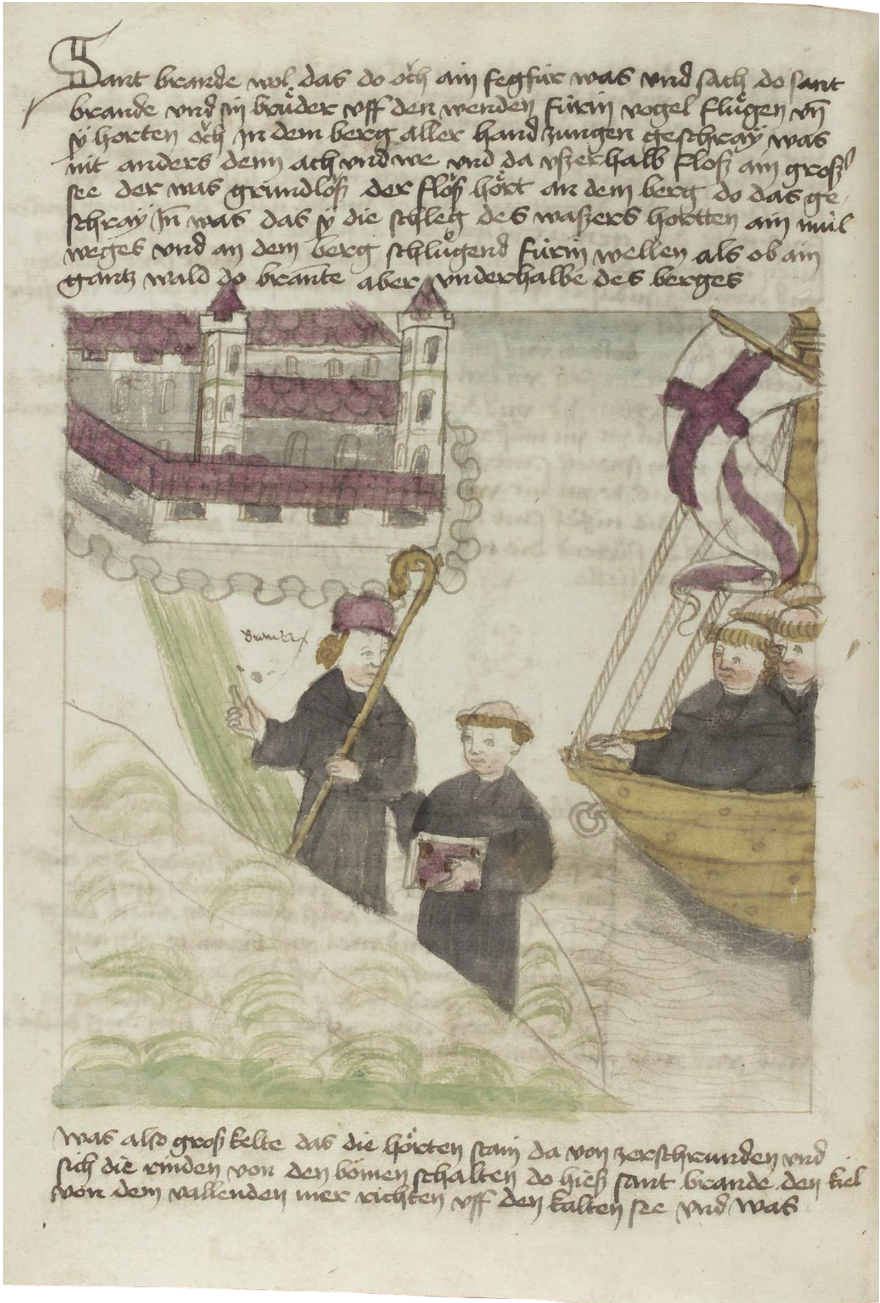 Sant brande wol das do och ain fegfür was vnd sach do sant
brande vnd sin brüder vff den wenden fürin vogel flügen vn̄
ÿ horten och In dem berg aller hand zungen geschraÿ was
nit anders denn ach vnd we vnd da vszerhalb flosz ain grosz
see der was grundlösz der flosz hört an dem berg do das ge
schraÿ In was das ÿ die schleg des waszers hortten ain mil
weges vnd an dem berg schlůgend fürin wellen als ob ain
gantz wald do brante aber vnderhalbe des berges
was also grosz kelte das die hörten stain da von zerschrunden vnd
sich die rinden von den bömen schalten do hiesz sant brande den kiel
von dem vallenden mer richten vff den kalten see vnd was